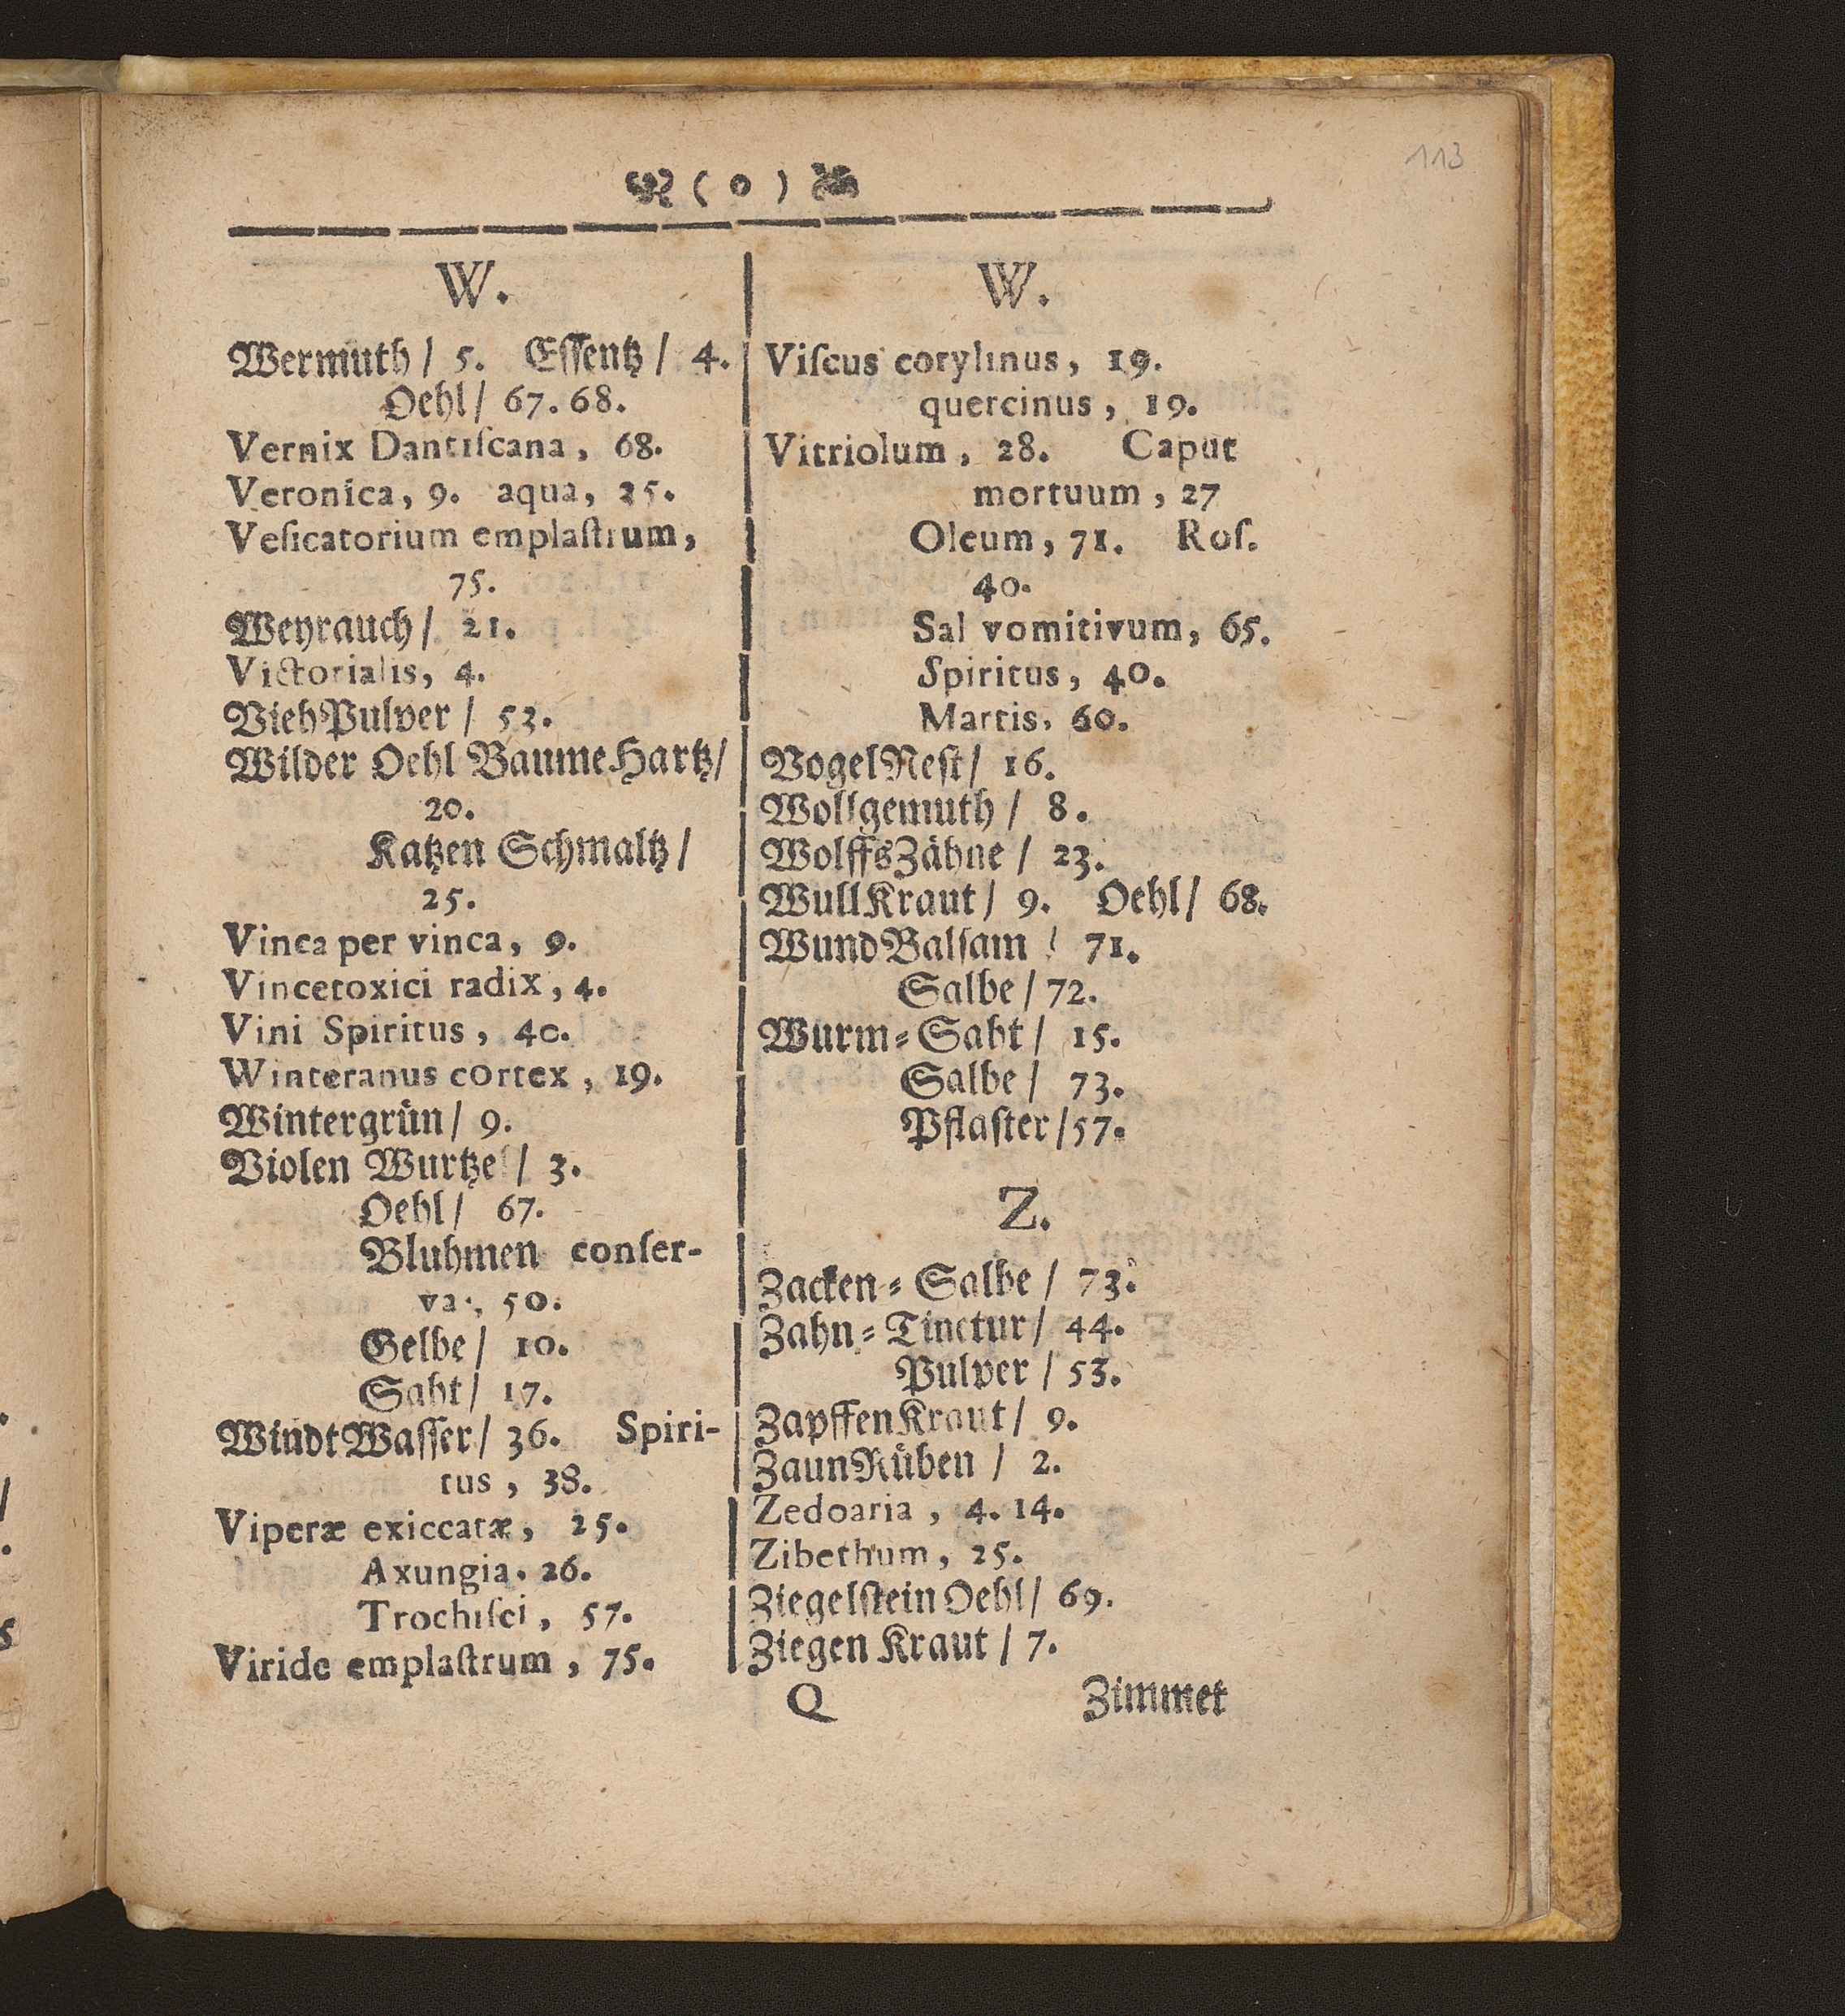 113
( 0 )
W.
Wermuth / 5. Eſſentz / 4.
Oehl / 67. 68.
Vernix Dantiſcana, 68.
Veronica, 9. aqua, 25.
Veſicatorium emplaſtrum,
75.
Weyrauch / 21.
Victorialis, 4.
ViehPulver / 53.
Wilder Oehl BaumeHartz /
20.
Katzen Schmaltz /
25.
Vinca per vinca, 9.
Vincetoxici radix, 4.
Vini Spiritus, 40.
Winteranus cortex, 19.
Wintergrün / 9.
Violen Wurtzel / 3.
Oehl / 67.
Bluhmen conſer-
va, 50.
Gelbe / 10.
Saht / 17.
WindtWaſſer / 36. Spiri-
tus, 38.
Viperæ exiccatæ, 25.
Axungia. 26.
Trochiſci, 57.
Viride emplaſtrum, 75.
W.
Viſcus corylinus, 19.
quercinus, 19.
Vitriolum, 28. Caput
mortuum, 27
Oleum, 71. Roſ.
40.
Sal vomitivum, 65.
Spiritus, 40.
Martis, 60.
VogelNeſt / 16.
Wollgemuth / 8.
WolffsZähne / 23.
WullKraut / 9. Oehl / 68.
WundBalſam / 71.
Salbe / 72.
Wurm=Saht / 15.
Salbe / 73.
Pflaſter / 57.
Z.
Zacken=Salbe / 73.
Zahn=Tinctur / 44.
Pulver / 53.
ZapffenKraut / 9.
ZaunRüben / 2.
Zedoaria, 4. 14.
Zibethum, 25.
Ziegelſtein Oehl / 69.
Ziegen Kraut / 7.
Q Zimmet